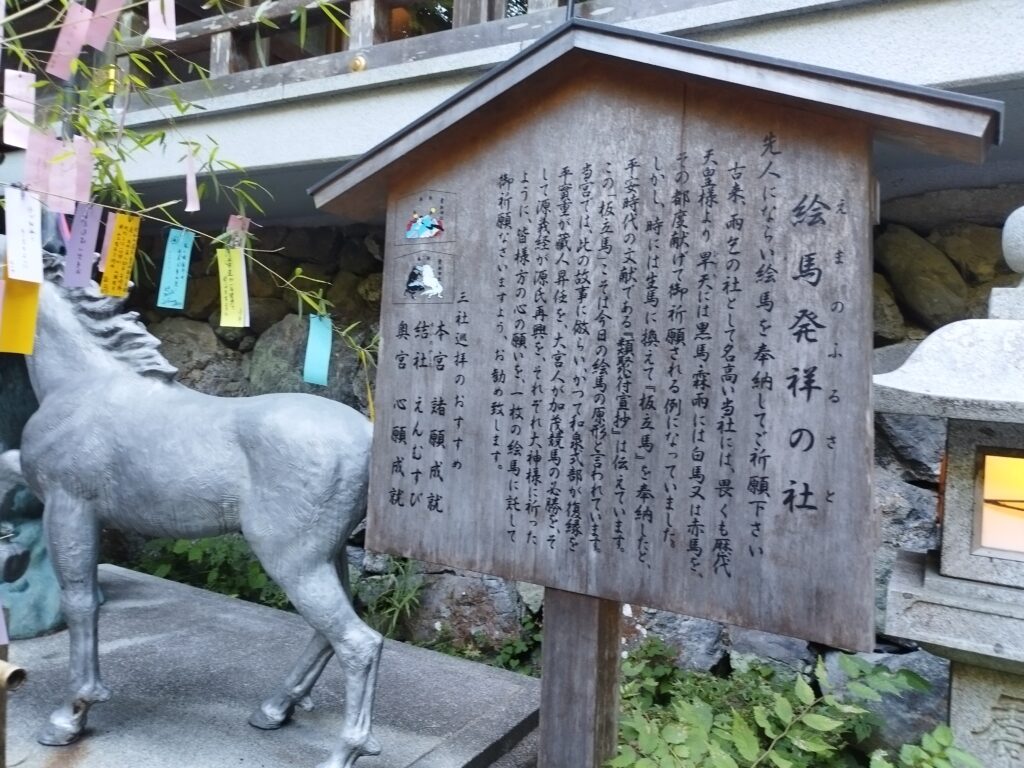 絵馬発祥の社
えまのふるさと
先人にならい絵馬を奉納してご祈願下さい
古来、雨乞の社として名高い当社には、畏くも歴代
天皇様より、旱天には黒馬、霖雨には白馬又は赤馬を、
その都度献げて御祈願される例になっていました。
しかし、時には生馬に換えて『板立馬』を奉納したと、
平安時代の文献である『類聚符宣抄』は伝えています。
この『板立馬』こそは今日の絵馬の原形と言われています。
当宮では、此の故事に倣らい、かつて和泉式部が復縁を
平実重が蔵人昇任を、大宮人が加茂競馬の必勝を、そ
して源義経が源氏再興を、それぞれ大神様に祈った
ように、皆様方の心の願いを、一枚の絵馬に託して
御祈願なさいますよう、お勧め致します。
三社巡拝のおすすめ
本宮 諸願成就
結社 えんむすび
奥宮 心願成就